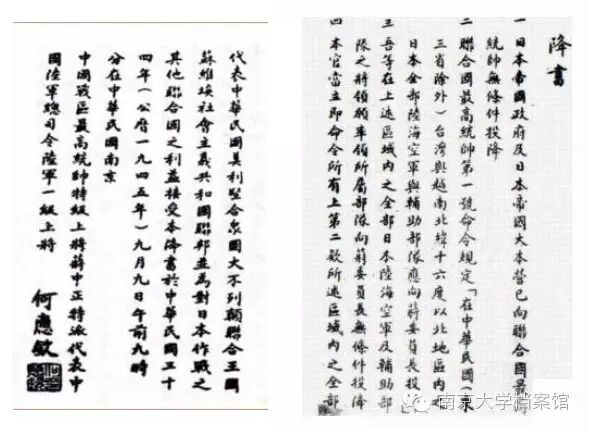 降書
一 日本帝國政府及日本帝國大本營已向聯合國最高
統帥無條件投降
二 聯合國最高統帥第一號命令規定「在中華民國(東
三省除外)台灣與越南北緯十六度以北地區內之
日本全部陸海空軍與輔助部隊應向蔣委員長投降
三 吾等在上述區域內之全部日本陸海空軍及輔助部
隊之將領願率領所屬部隊向蔣委員長無條件投降
四 本官當立即命令所有上第二款所述區域內之全部
代表中華民國美利堅合眾國大不列顛聯合王國
蘇維埃社會主義共和國聯邦並為對日本作戰之
其他聯合國之利益接受本降書於中華民國三十
四年(公曆一九四五年)九月九日午前九時
分在中華民國南京
中國戰區最高統帥特級上將蔣中正特派代表中
國陸軍總司令陸軍一級上將
何應欽
南京大学档案馆